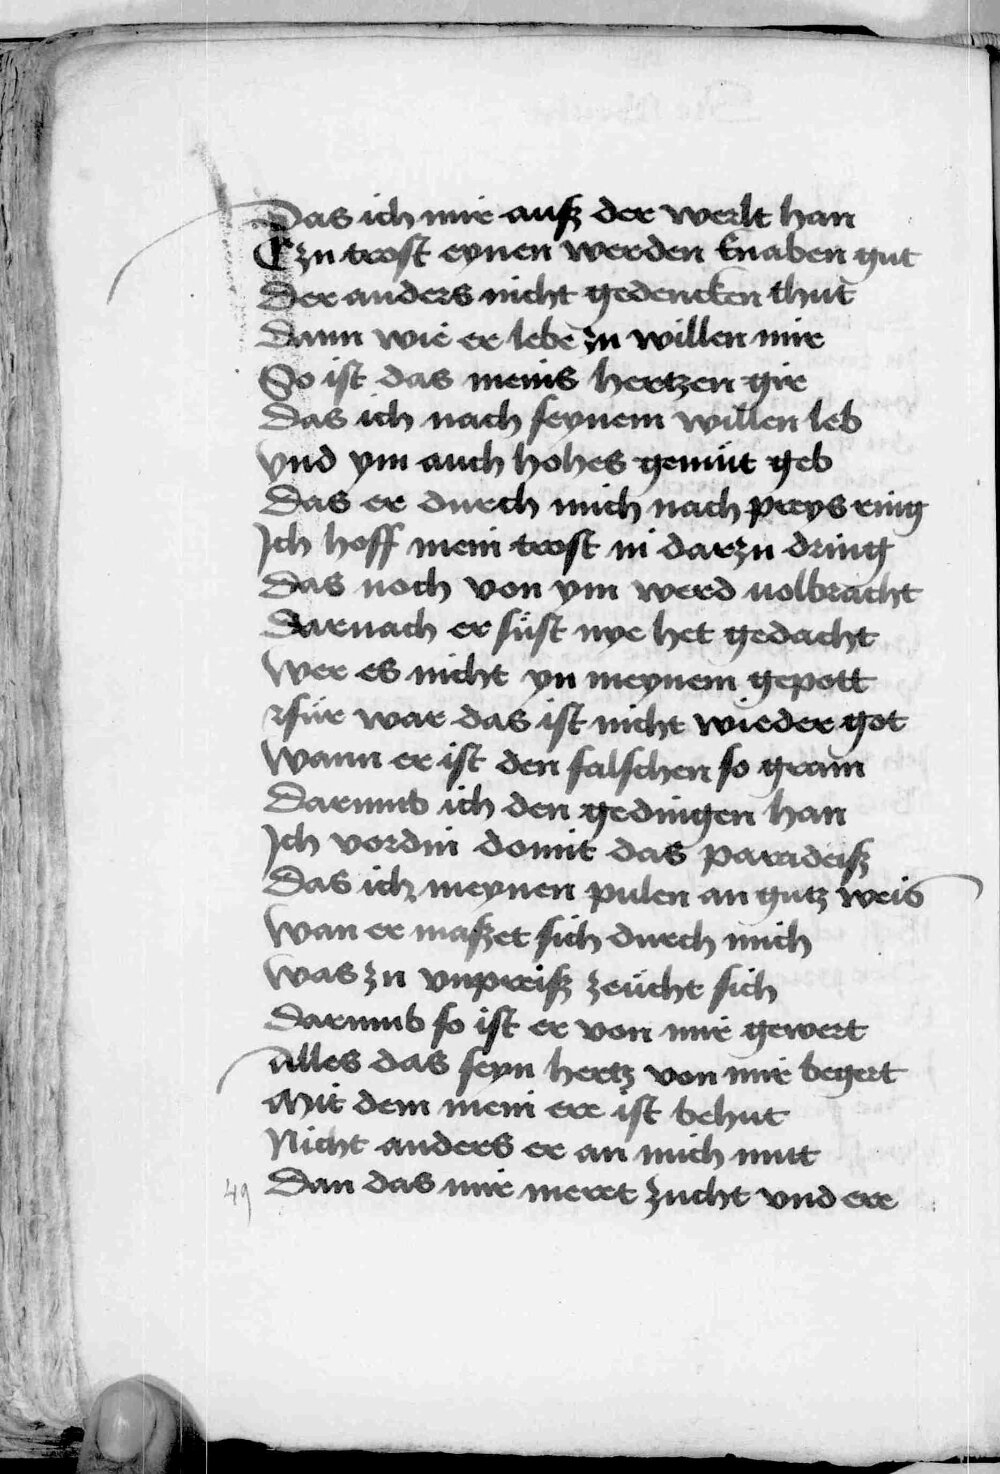 Das ich mir auß der werlt han
Czu trost eynen werden knaben gut
Der anders nicht gedencken thut
Dann wie er lebe zu willen mir
So ist das meins hertzen gir
Das ich nach seynem willen leb
Vnd ym auch hohes gemüt geb
Das er durch mich nach preys ring
Ich hoff mein trost in darzu dring
Das noch von ym werd uolbracht
Darnach er süst nye het gedacht
Wer es nicht yn meynem gepott
für war das ist nicht wieder got
Wann er ist den falschen so gram
Darumb ich den gedingen han
Ich vordin domit das paradeiß
Das ich meynen pulen an gutz weis
Wan er maßet sich durch mich
Was zu vnpreiß zeücht sich
Darumb so ist er von mir gewert
Alles das seyn hertz von mir begert
Mit dem mein ere ist behut
Nicht anders er an mich mut
Dan das mir meret zucht vnd ere
49